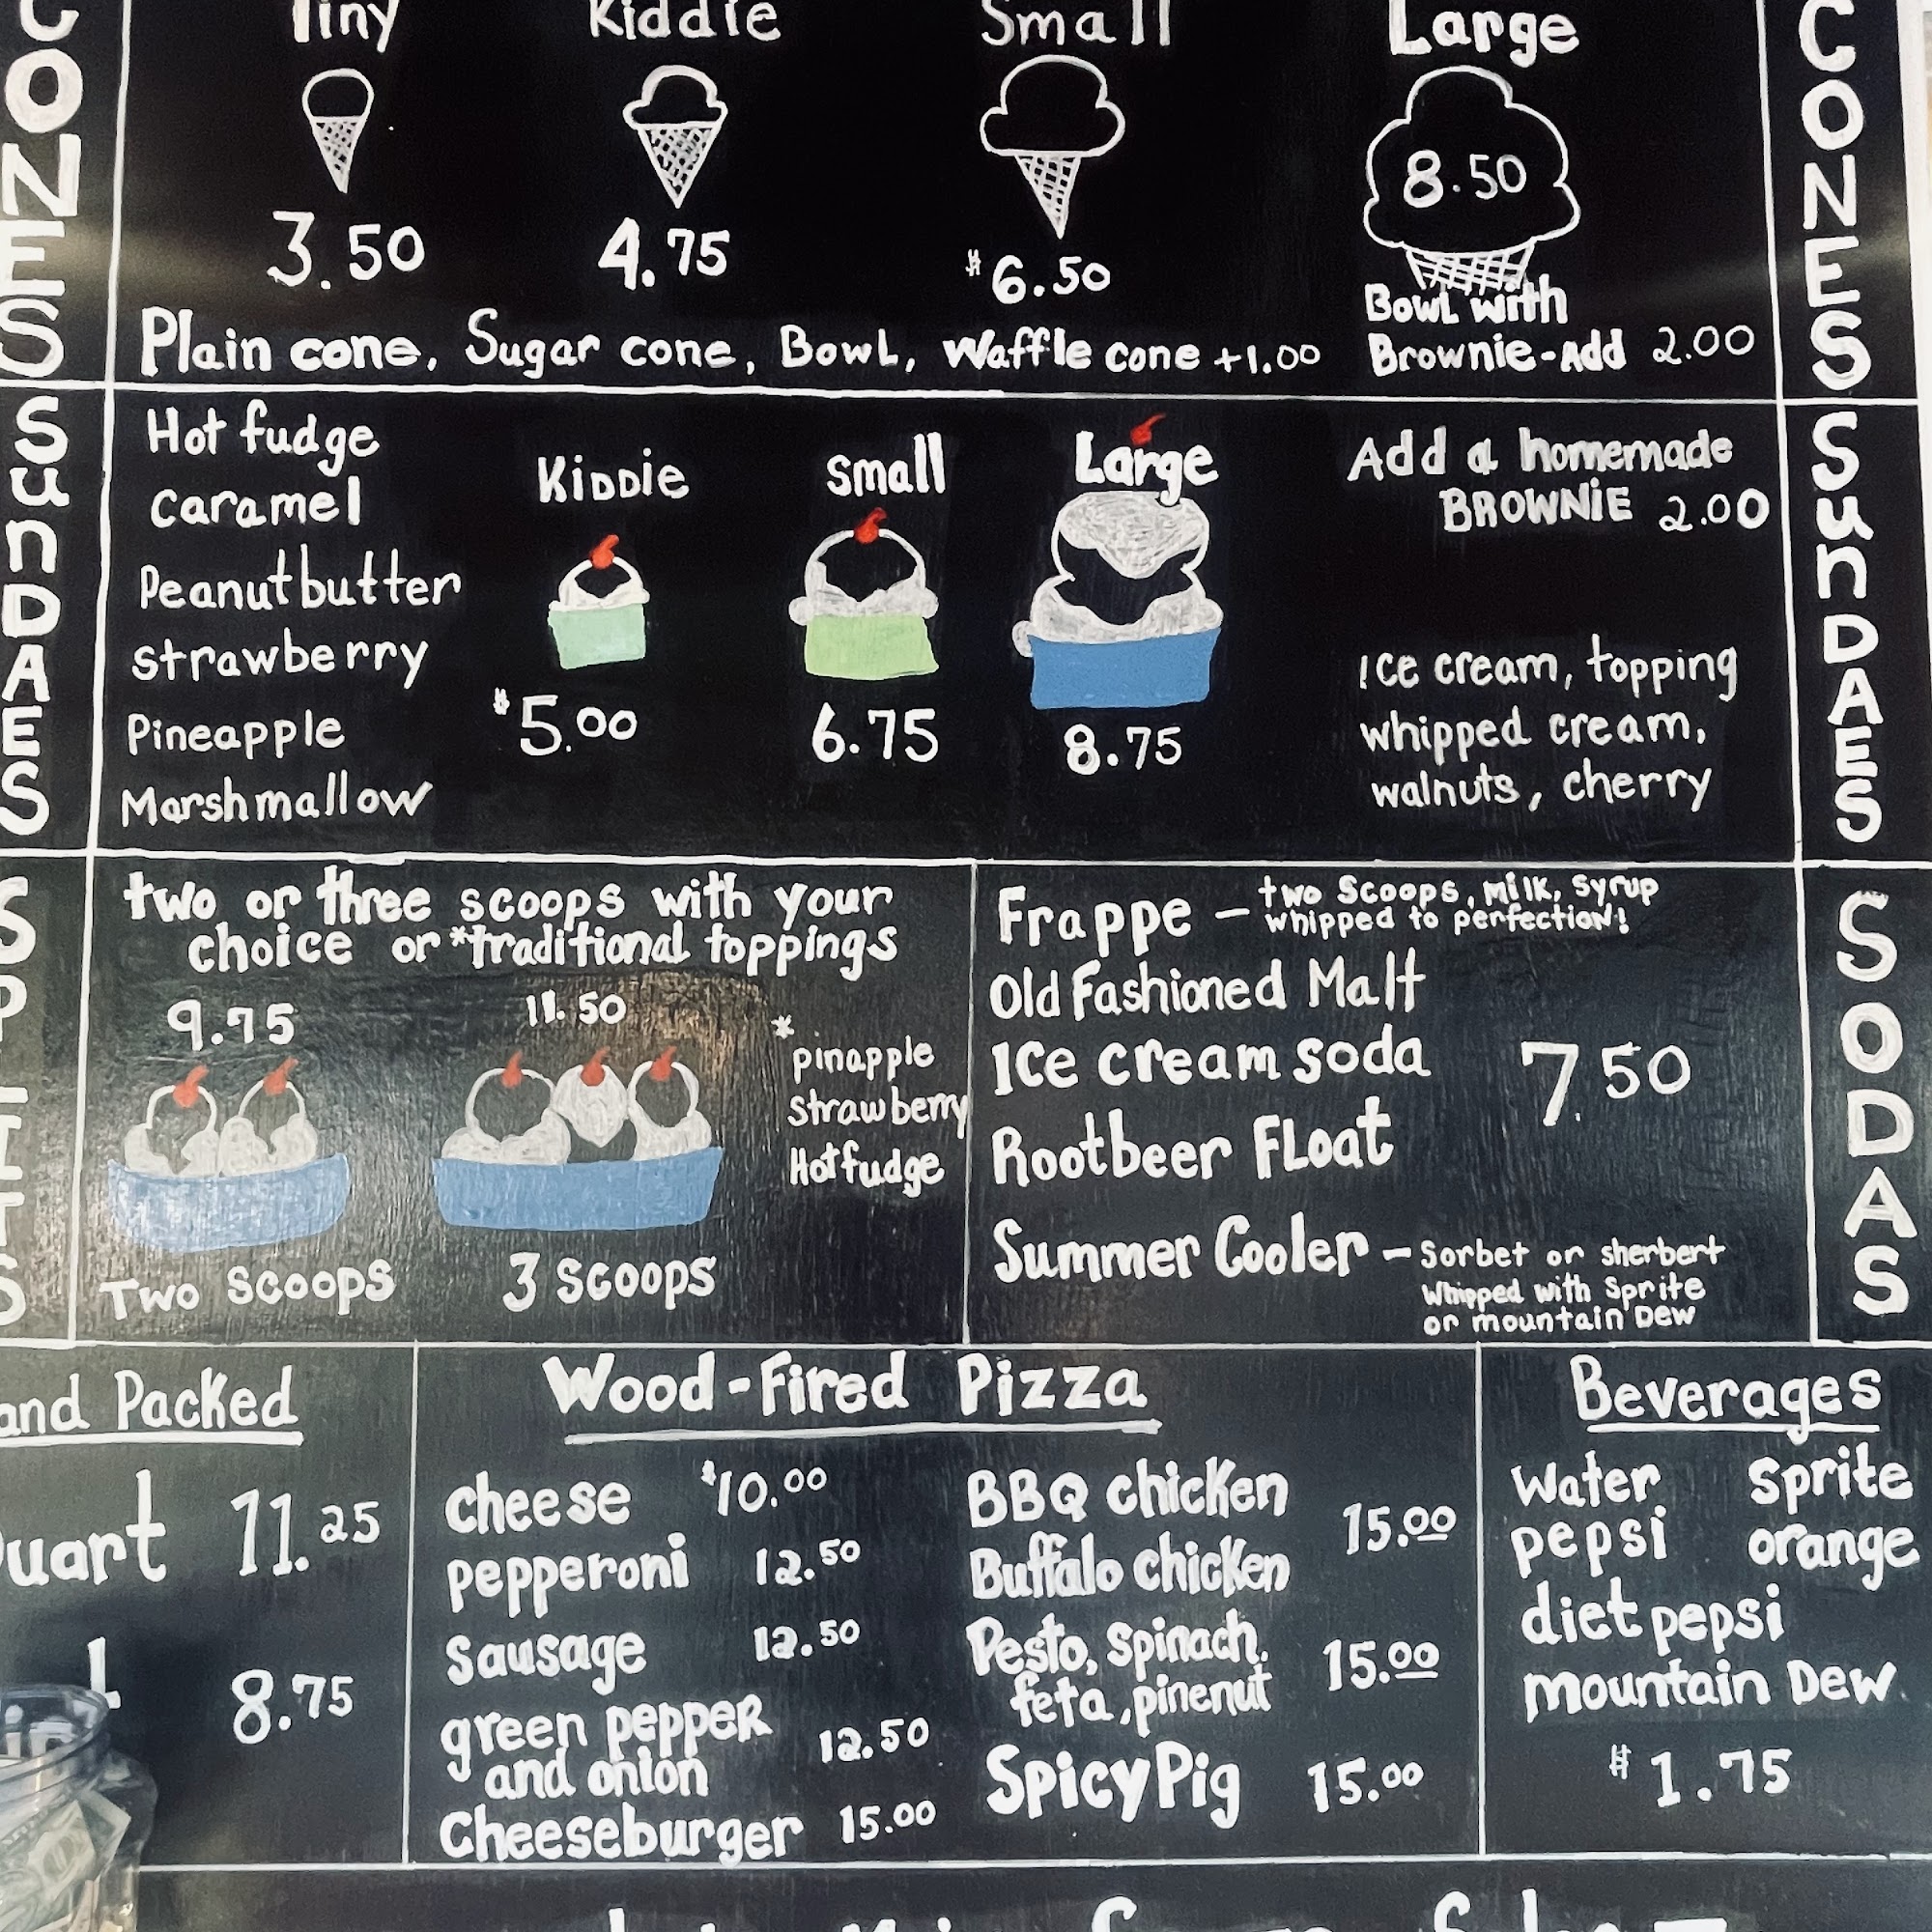 CONES
Tiny Kiddie Small Large
3.50 4.75 $6.50 8.50
Bowl with
Plain cone, Sugar cone, Bowl, Waffle cone +1.00 Brownie-Add 2.00
CONES
SunDAES
Hot fudge
caramel
Peanutbutter
strawberry
Pineapple
Marshmallow
KiDDie small Large
$5.00 6.75 8.75
Add a homemade
BROWNiE 2.00
Ice cream, topping
whipped cream,
walnuts, cherry
SunDAES
SPLITS
two or three scoops with your
choice or *traditional toppings
9.75 11.50
*
pinapple
strawberry
Hotfudge
Two scoops 3 scoops
Frappe - two Scoops, Milk, Syrup
whipped to perfection!
Old Fashioned Malt
Ice cream soda
7.50
Rootbeer FLoat
Summer Cooler - Sorbet or sherbert
Whipped with Sprite
or mountain Dew
SODAS
and Packed
uart 11.25
8.75
Wood-Fired Pizza
cheese $10.00
pepperoni 12.50
Sausage 12.50
green pepper
and onion 12.50
Cheeseburger 15.00
BBQ chicken
Buffalo chicken 15.00
Pesto, spinach,
feta, pinenut 15.00
SpicyPig 15.00
Beverages
Water Sprite
pepsi orange
diet pepsi
mountain Dew
$1.75